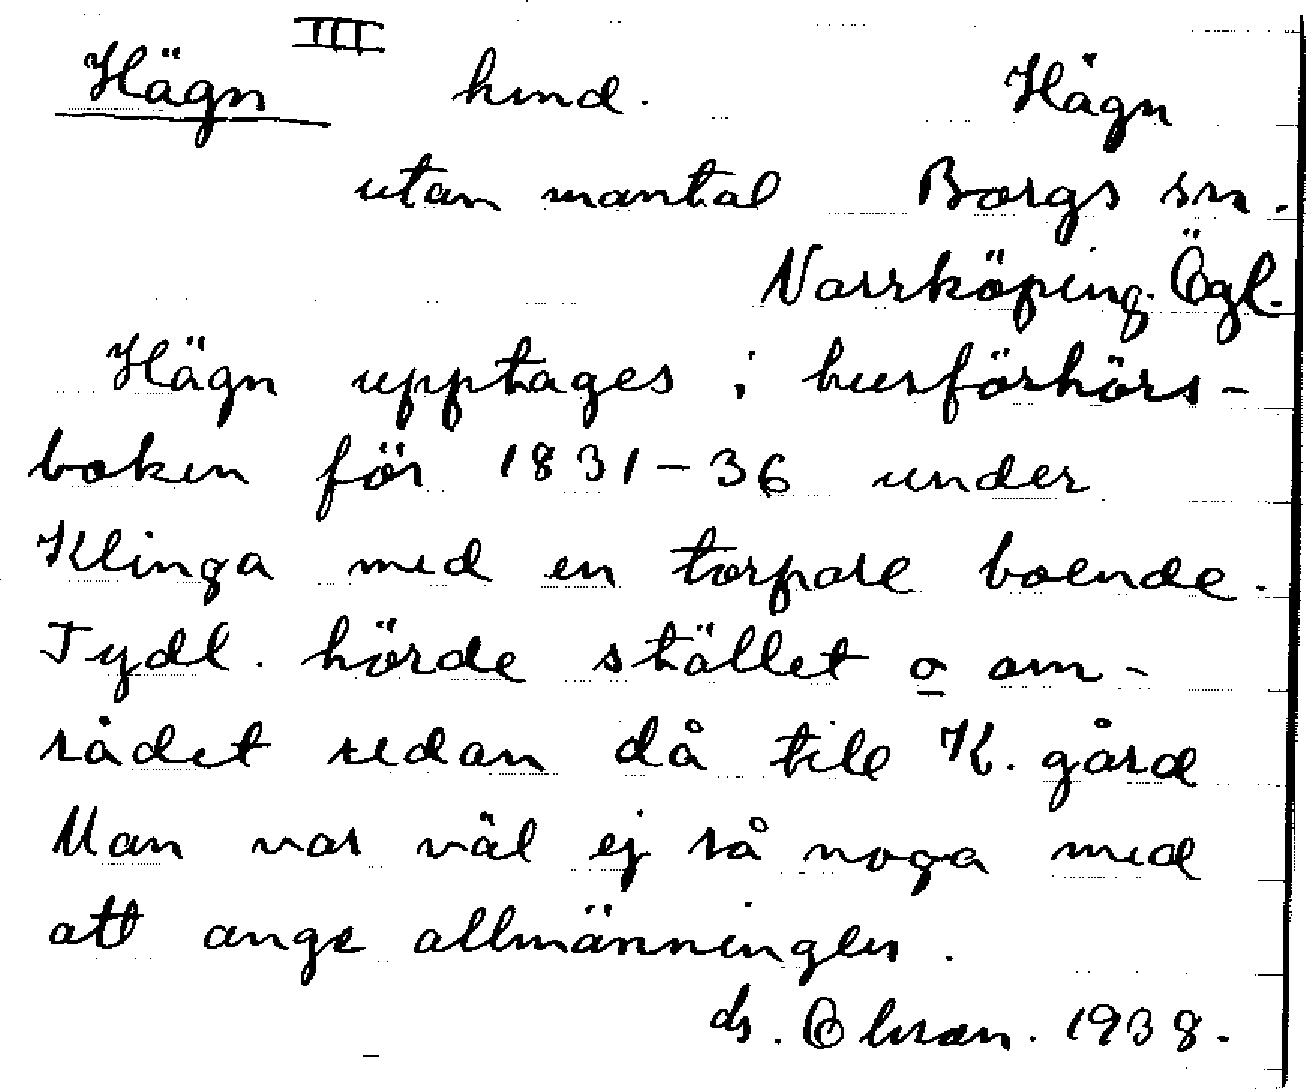 III
Hägn hmd. Hägn
utan mantal Borgs sn.
Norrköping. Ögl.
Hägn upptages i husförhörs-
boken för 1831-36 under
Klinga med en torpare boende.
Tydl. hörde stället o om-
rådet redan då till K. gård
Man var väl ej så noga med
att ange allmänningen.
ds. 1938.